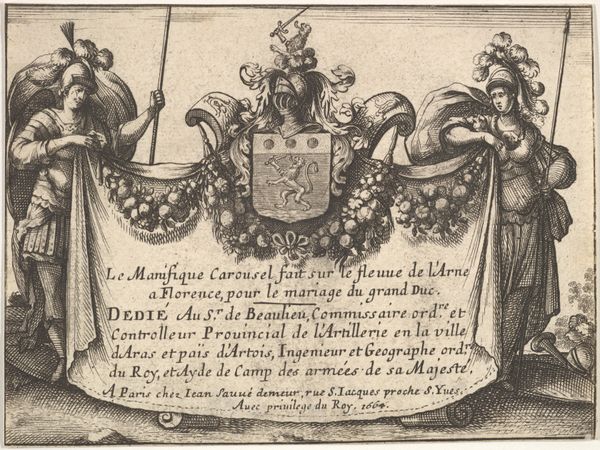 Le Manifique Carousel fait sur le fleuue de l'Arne
a Florence, pour le mariage du grand Duc.
DEDIE Au S.r de Beaulieu, Commissaire ord.re et
Controlleur Provincial de l'Artillerie en la ville
d'Aras et païs d'Artois, Ingenieur et Geographe ord.re
du Roy, et Ayde de Camp des armées de sa Majesté.
A Paris chez Iean Sauué demeur, rue S. Iacques proche S. Yues.
Avec privilege du Roy. 1664.